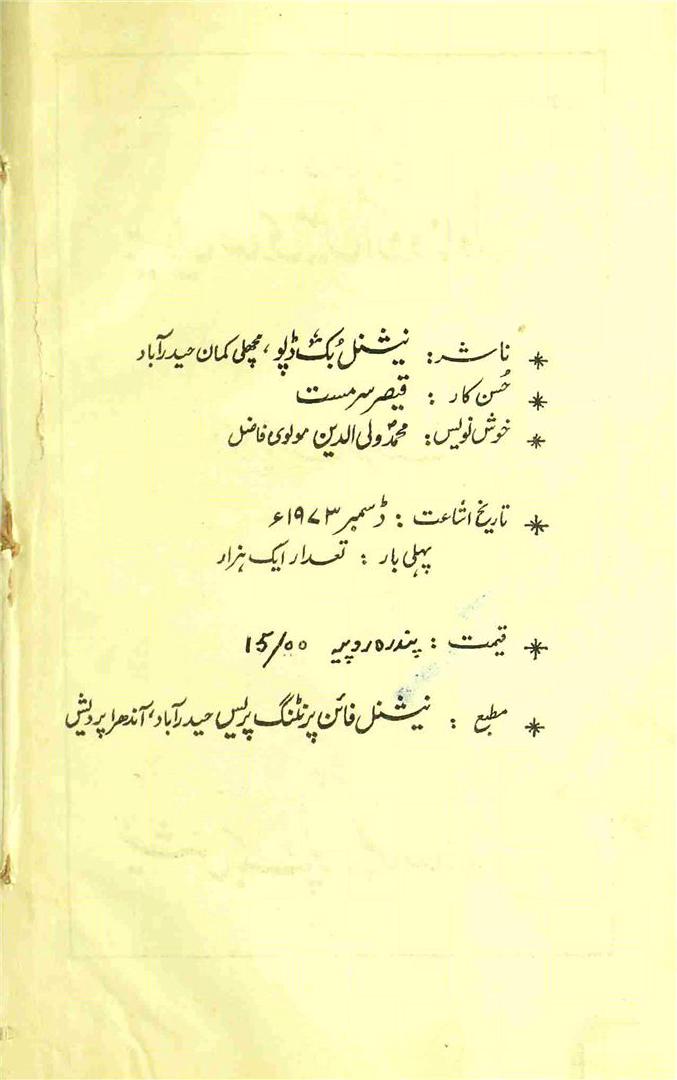 * ناشر: نیشنل بُک ڈپو، مچھلی کمان حیدرآباد
* حُسن کار : قیصر سرمست
* خوش نویس: محمد ولی الدین مولوی فاضل
* تاریخ اشاعت : ڈسمبر ۱۹۷۳ء
پہلی بار : تعداد ایک ہزار
* قیمت : پندرہ روپیہ 15/00
* مطبع : نیشنل فائن پرنٹنگ پریس حیدرآباد، آندھرا پردیش